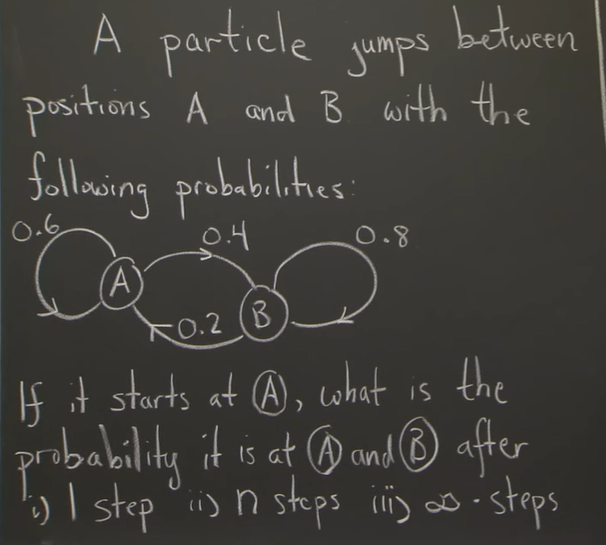 A particle jumps between
positions A and B with the
following probabilities:
0.6 0.4 0.8
A B
0.2
If it starts at Ⓐ, what is the
probability it is at Ⓐ and Ⓑ after
i) 1 step ii) n steps iii) ∞-steps